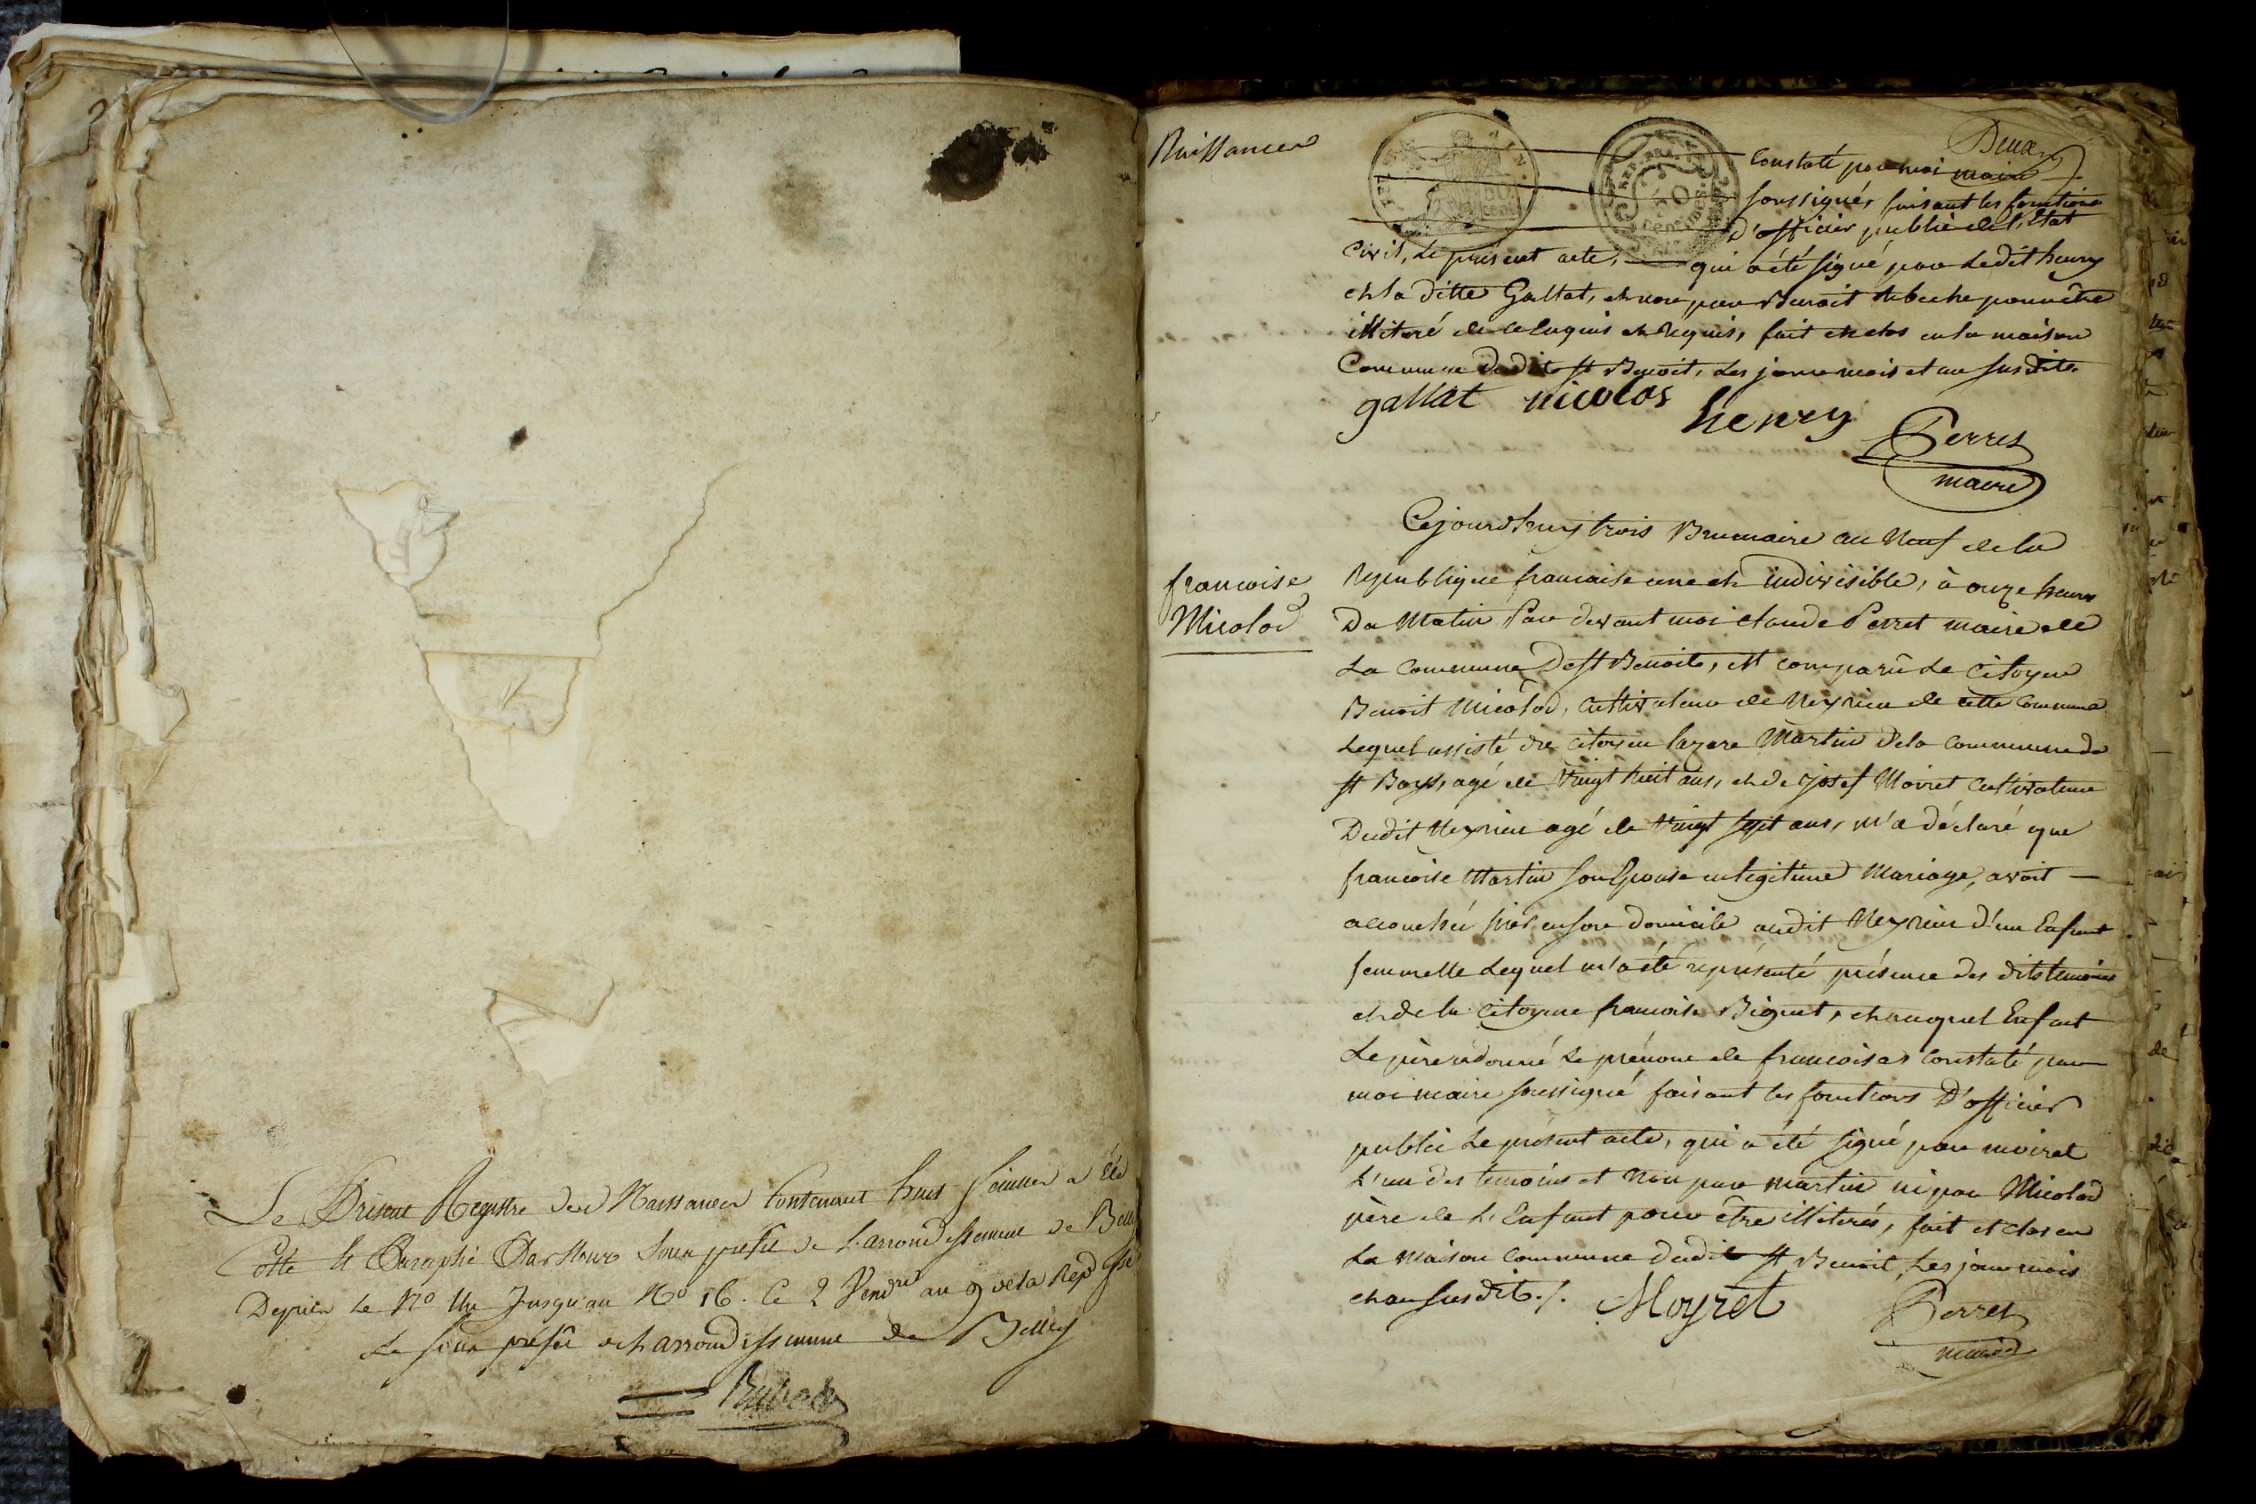 Le Present Registre des Naissances Contenant huit feuilles a été
Cotté et Paraphé Par Nous Sous prefet de L'arrondissement de Belley
Depuis Le No Un Jusqu'au No 16. Ce 2 Vendre an 9 de la Rep. fse
Le sous préfet de L'arrondissement de Belley
Naissances
Deux
Constaté par moi maire
soussignés faisant les fonctions
D'officier public de l'Etat
Civil, Le présent acte, qui a été signé par Ledit henry
et la ditte Gallat, et non par Benoit pour être
illiteré de ce enquis et Requis, fait et clos en la maison
Commune dudit St Benoit, Les jour mois et an susdits.
gallat nicolas henry
Perret
maire
Cejourdhuy trois Brumaire an Neuf de la
francoise
Micolod
Republique francaise une et indivisible, à onze heures
Du Matin Par devant moi claude Perret maire de
La Commune De St Benoit, est comparu Le Citoyen
Benoit Micolod, Cultivateur de Neyrieu de cette Commune
Lequel assisté du citoyen lazare Martin de la Commune de
St Boys, agé de Vingt huit ans, et de josef Moiret Cultivateur
Dudit Neyrieu agé de Vingt sept ans, m'a déclaré que
francoise Martin son Epouse en legitime Mariage, avoit
accouchée hier en son domicile audit Neyrieu d'un Enfant
femmelle Lequel m'a été représenté présence des dits temoins
et de la Citoyenne francoise Biguet, et auquel Enfant
Le père a donné Le prénom de francoise Constaté par
moi maire soussigné faisant les fonctions D'officier
public Le présent acte, qui a été signé par moiret
L'un des temoins et Non par Martin ni par Micolod
père de L'Enfant pour être illiterés, fait et clos en
La Maison Commune dudit St Benoit, Les jour mois
et an susdits ./. Moyret
Perret
maire